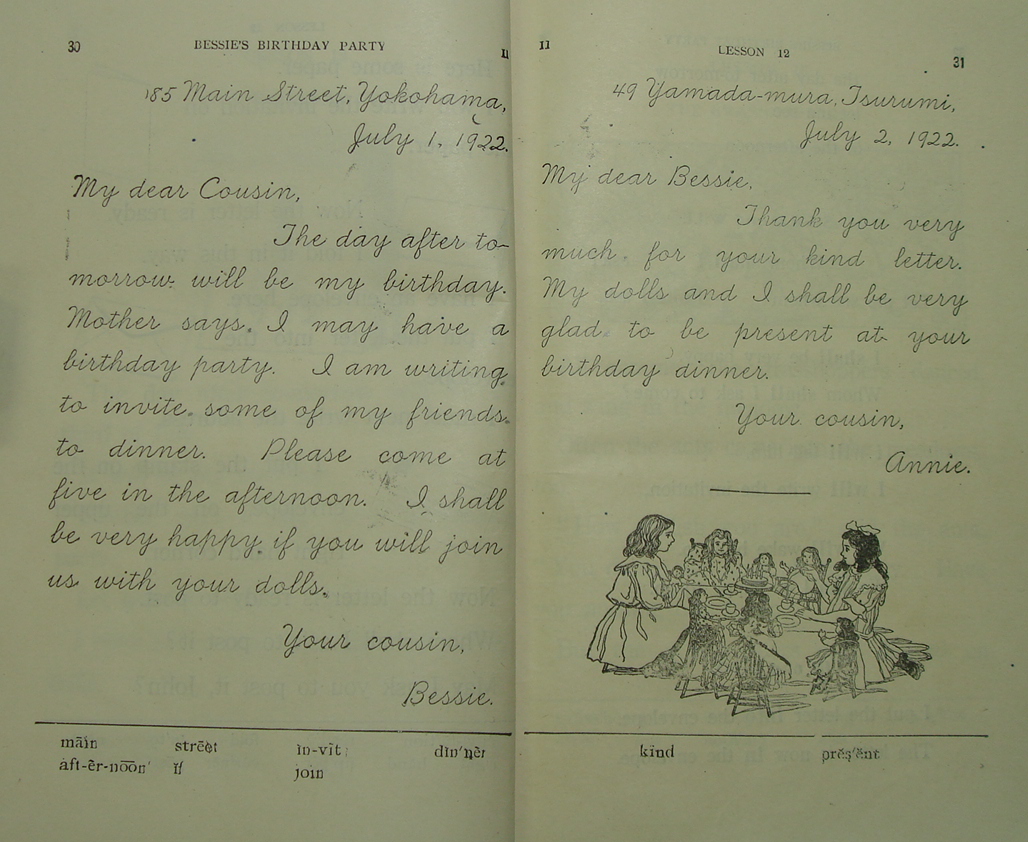 30 BESSIE'S BIRTHDAY PARTY 11
185 Main Street, Yokohama,
July 1, 1922.
My dear Cousin,
The day after to-
morrow will be my birthday.
Mother says I may have a
birthday party. I am writing
to invite some of my friends
to dinner. Please come at
five in the afternoon. I shall
be very happy if you will join
us with your dolls.
Your cousin,
Bessie.
māin strēēt in-vīt din'nẽr
aft-ẽr-nōōn' if join
11 LESSON 12 31
49 Yamada-mura, Tsurumi,
July 2, 1922.
My dear Bessie,
Thank you very
much for your kind letter.
My dolls and I shall be very
glad to be present at your
birthday dinner.
Your cousin,
Annie.
kind